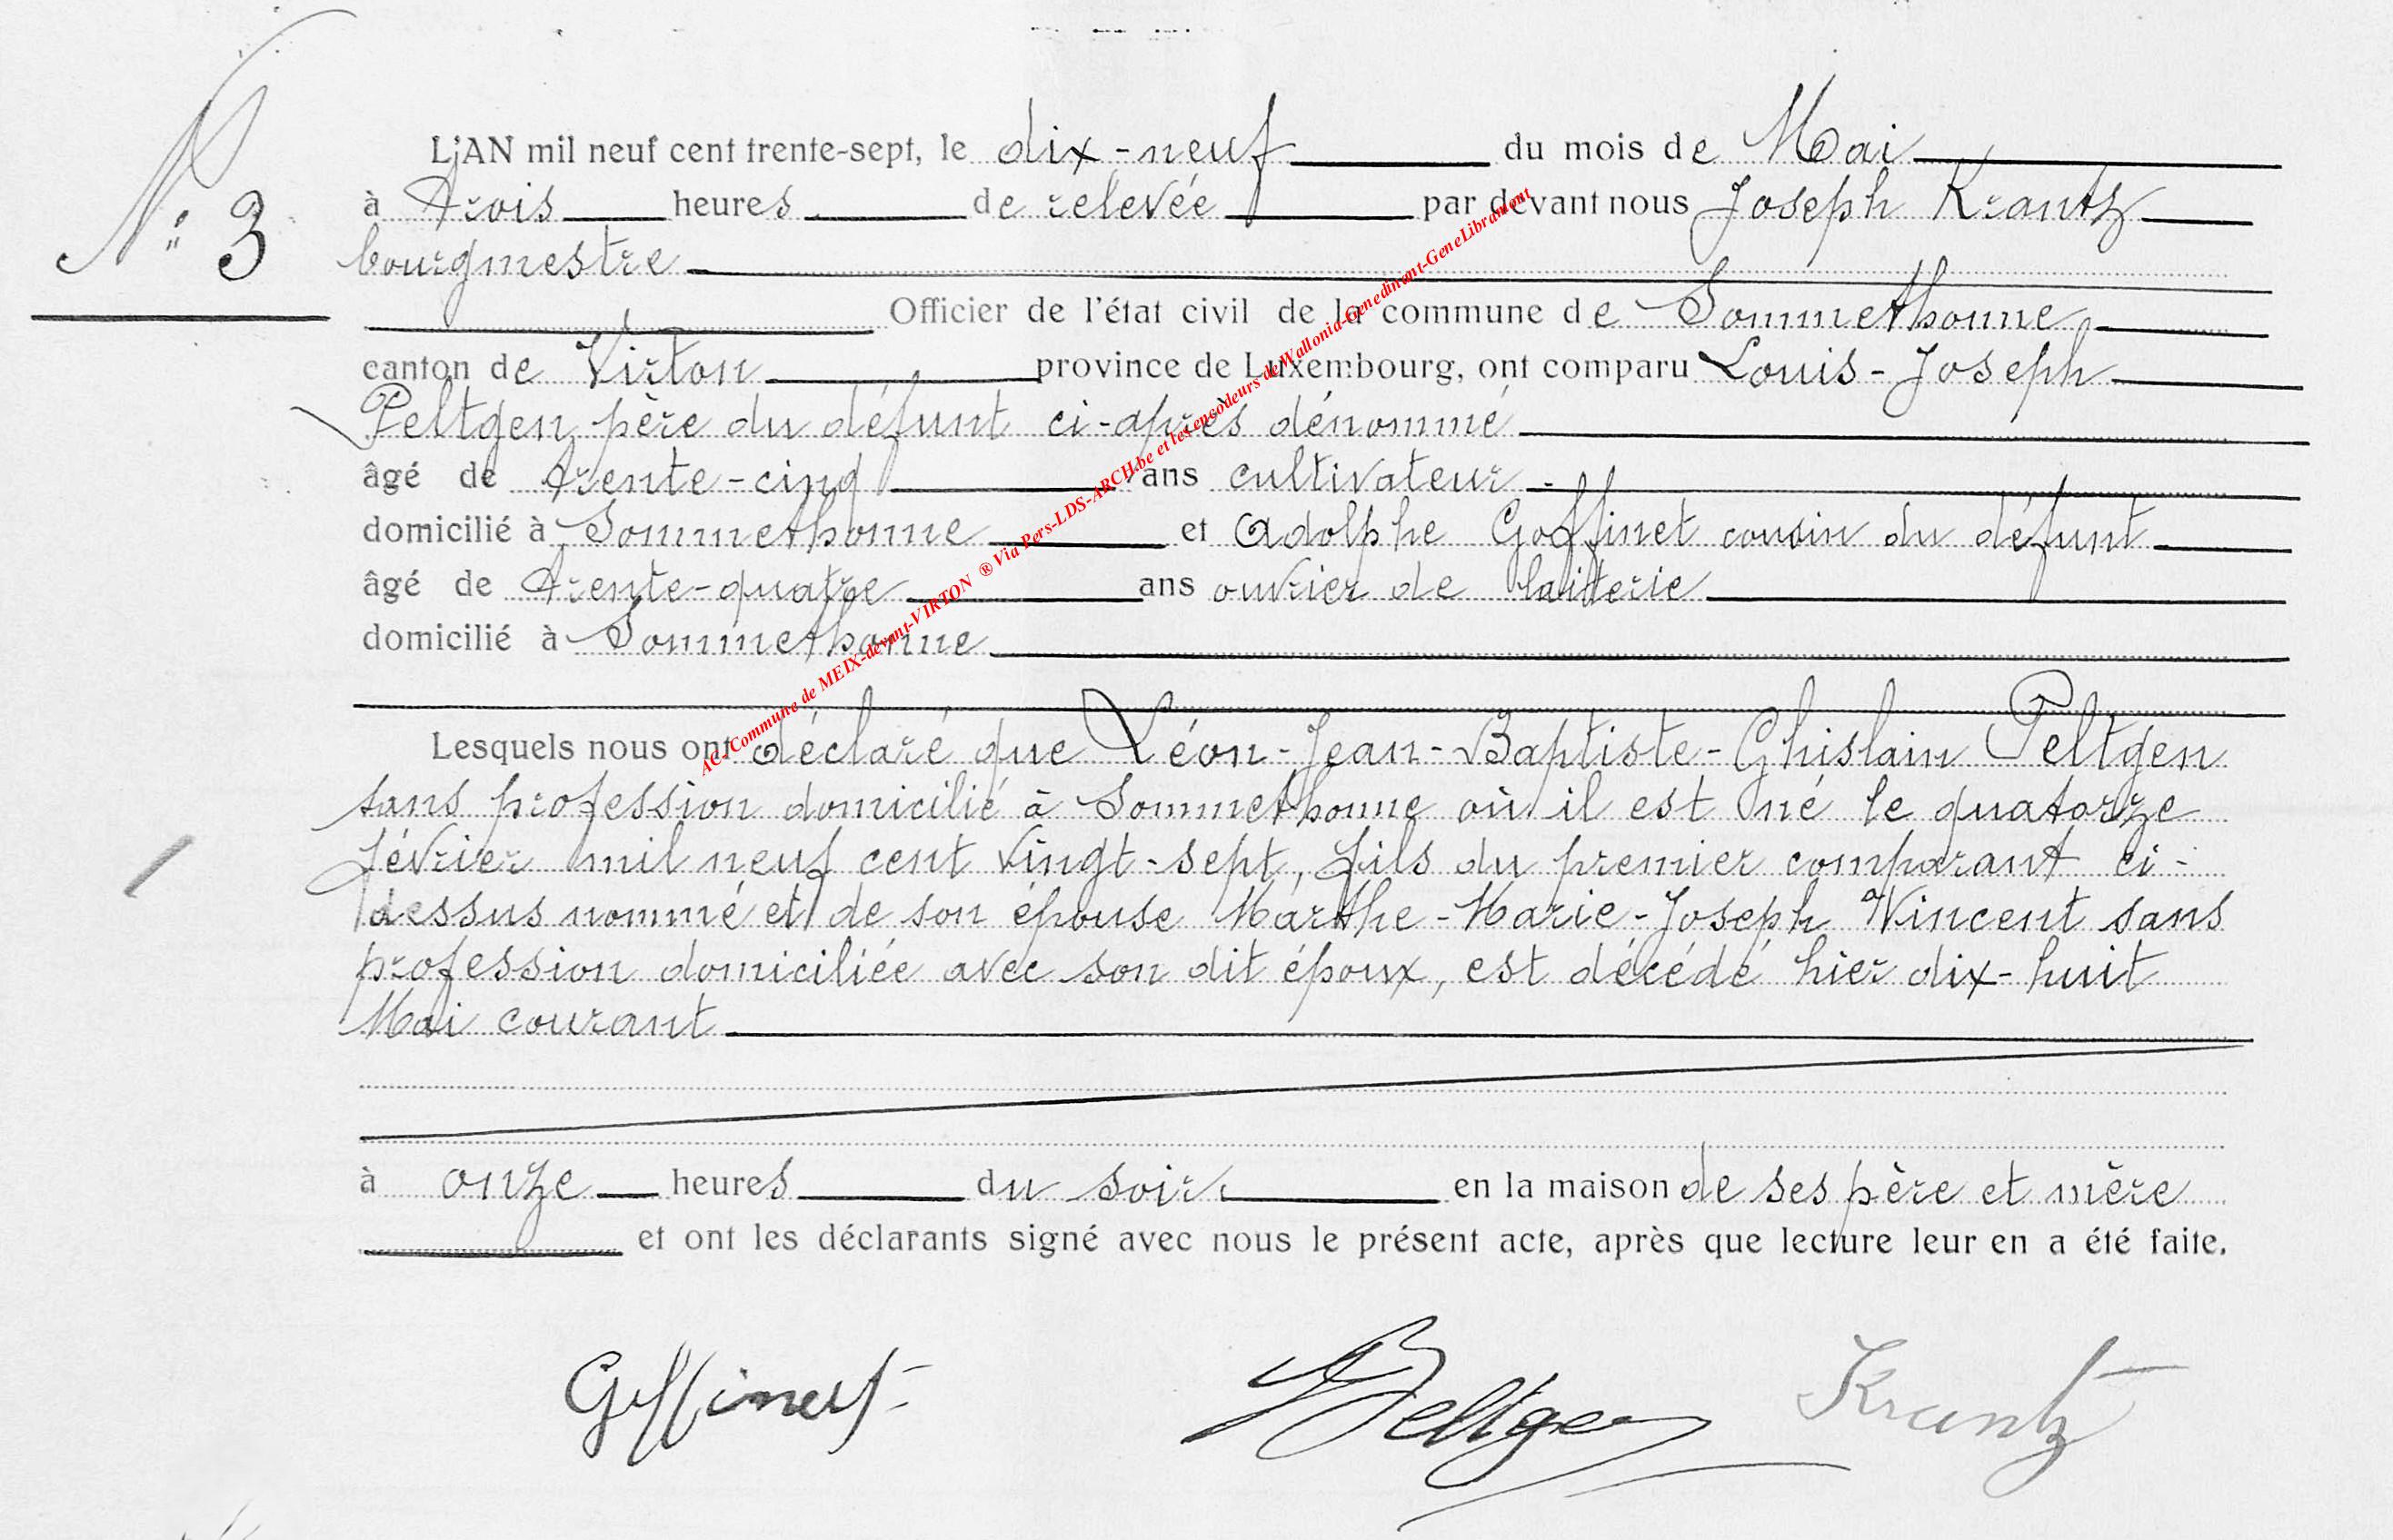 N° 3
L'AN mil neuf cent trente-sept, le dix-neuf du mois de Mai
à trois heures de relevée par devant nous Joseph Krantz
bourgmestre
Officier de l'état civil de la commune de Sommethonne
canton de Virton province de Luxembourg, ont comparu Louis-Joseph
Peltgen père du défunt ci-après dénommé
âgé de trente-cinq ans cultivateur
domicilié à Sommethonne et Adolphe Goffinet cousin du défunt
âgé de trente-quatre ans ouvrier de laiterie
domicilié à Sommethonne
Lesquels nous ont déclaré que Léon-Jean-Baptiste-Ghislain Peltgen
sans profession domicilié à Sommethonne où il est né le quatorze
février mil neuf cent vingt-sept, fils du premier comparant ci-
dessus nommé et de son épouse Marthe-Marie-Joseph Vincent sans
profession domiciliée avec son dit époux, est décédé hier dix-huit
Mai courant
à onze heures du soir en la maison de ses père et mère
et ont les déclarants signé avec nous le présent acte, après que lecture leur en a été faite.
Goffinet Peltgen Krantz
AC-Commune de MEIX-devant-VIRTON ® Via Pers-LDS-ARCH.be et les encodeurs de Wallonia-Genedinant-GeneLibramont